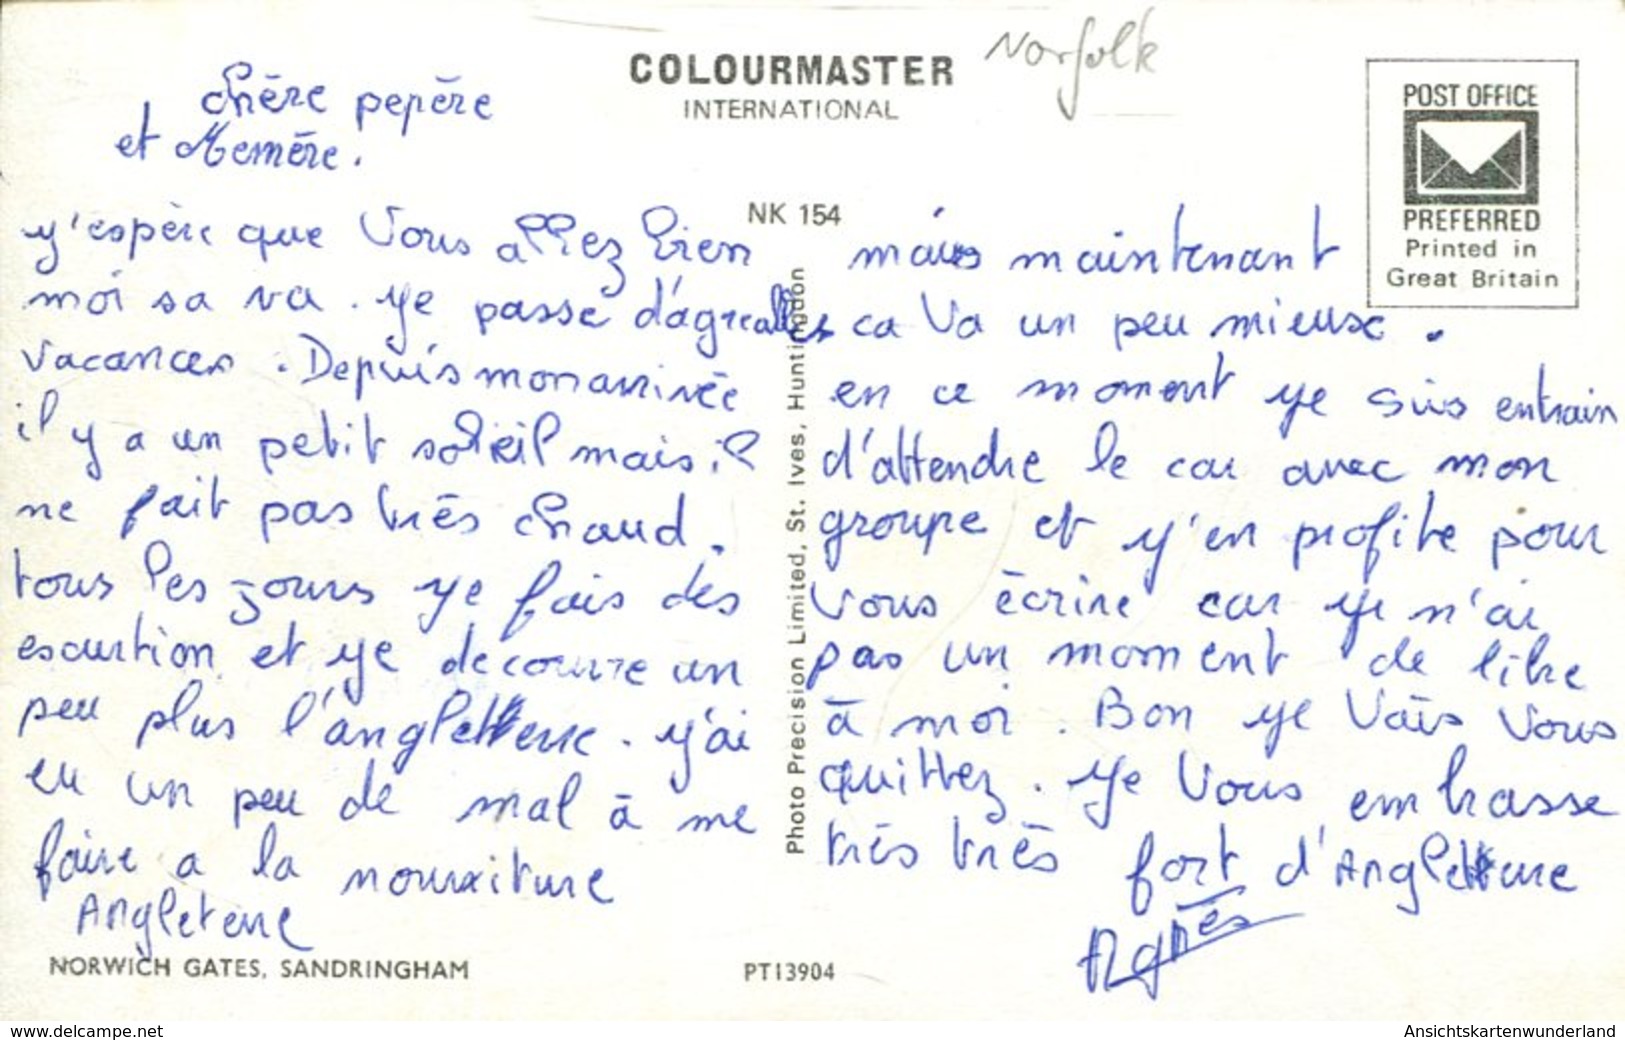 COLOURMASTER
INTERNATIONAL
Norfolk
POST OFFICE
PREFERRED
Printed in
Great Britain
NK 154
chère pepère
et Memère.
y'espère que Vous allez bien
moi sa va. ye passe d'agreables
vacances. Depuis mon arrivée
il y a un petit soleil mais il
ne fait pas très chaud.
tous les jours ye fais des
escurtion et ye decouvre un
peu plus l'angletterre. y'ai
eu un peu de mal à me
faire a la nourriture
Angleterre
mais maintenant
ca Va un peu mieux.
en ce moment ye suis entrain
d'attendre le car avec mon
groupe et y'en profite pour
Vous écrire car ye n'ai
pas un moment de libre
à moi. Bon ye Vais Vous
quittez. ye Vous embrasse
très très fort d'Angletterre
Agnès
Photo Precision Limited, St. Ives, Huntingdon
NORWICH GATES, SANDRINGHAM
PT13904
www.delcampe.net
Ansichtskartenwunderland